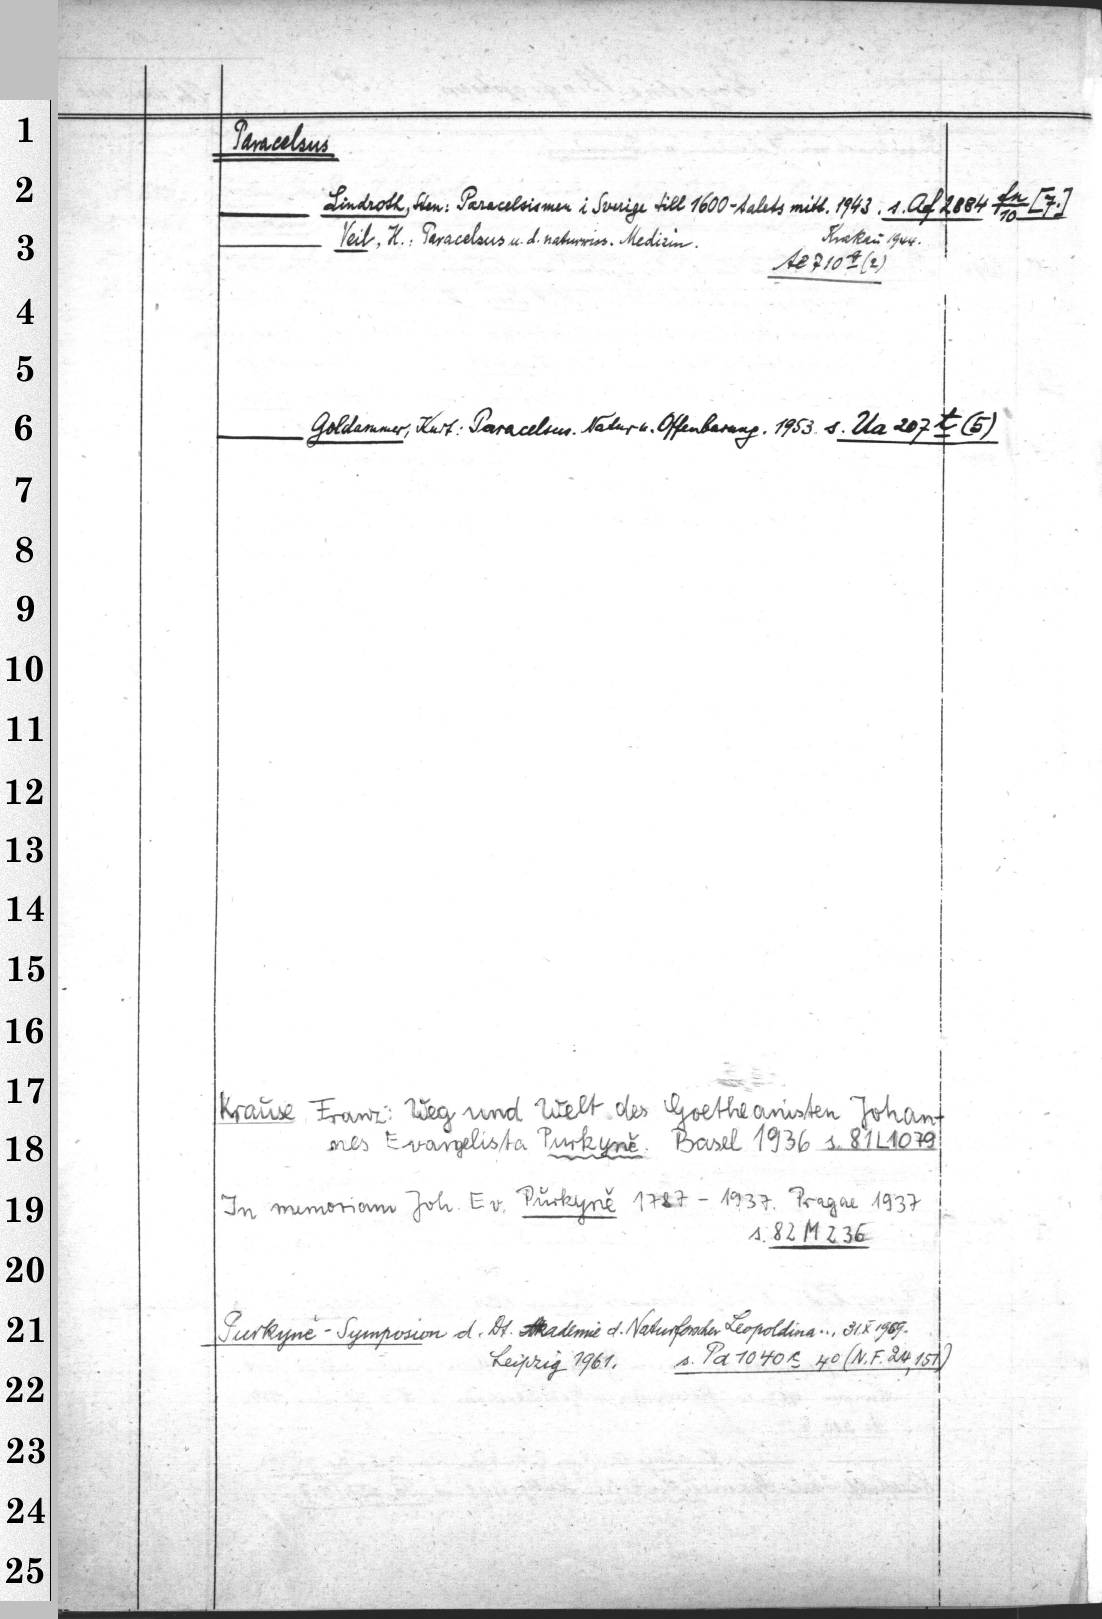 1
Paracelsus
2
Lindroth, Sten: Paracelsismen i Sverige till 1600-talets mitt. 1943. s. Af 2884 fn/10 [7.]
3
Veil, H.: Paracelsus u. d. naturwiss. Medizin. Krakau 1944.
Ae 710 q (2)
4
5
6
Goldammer, Kurt: Paracelsus. Natur u. Offenbarung. 1953. s. Ua 207 t (5)
7
8
9
10
11
12
13
14
15
16
17
Krause Franz: Weg und Welt des Goetheanisten Johan-
18
nes Evangelista Purkyně. Basel 1936 s. 81 L 1079
19
In memoriam Joh. Ev. Purkyně 1787 - 1937. Pragae 1937
s. 82 M 236
20
21
Purkyně - Symposion d. Dt. Akademie d. Naturforscher Leopoldina .., 31.X 1959.
Leipzig 1961. s. Pd 1040 4° (N.F. 24, 151)
22
23
24
25